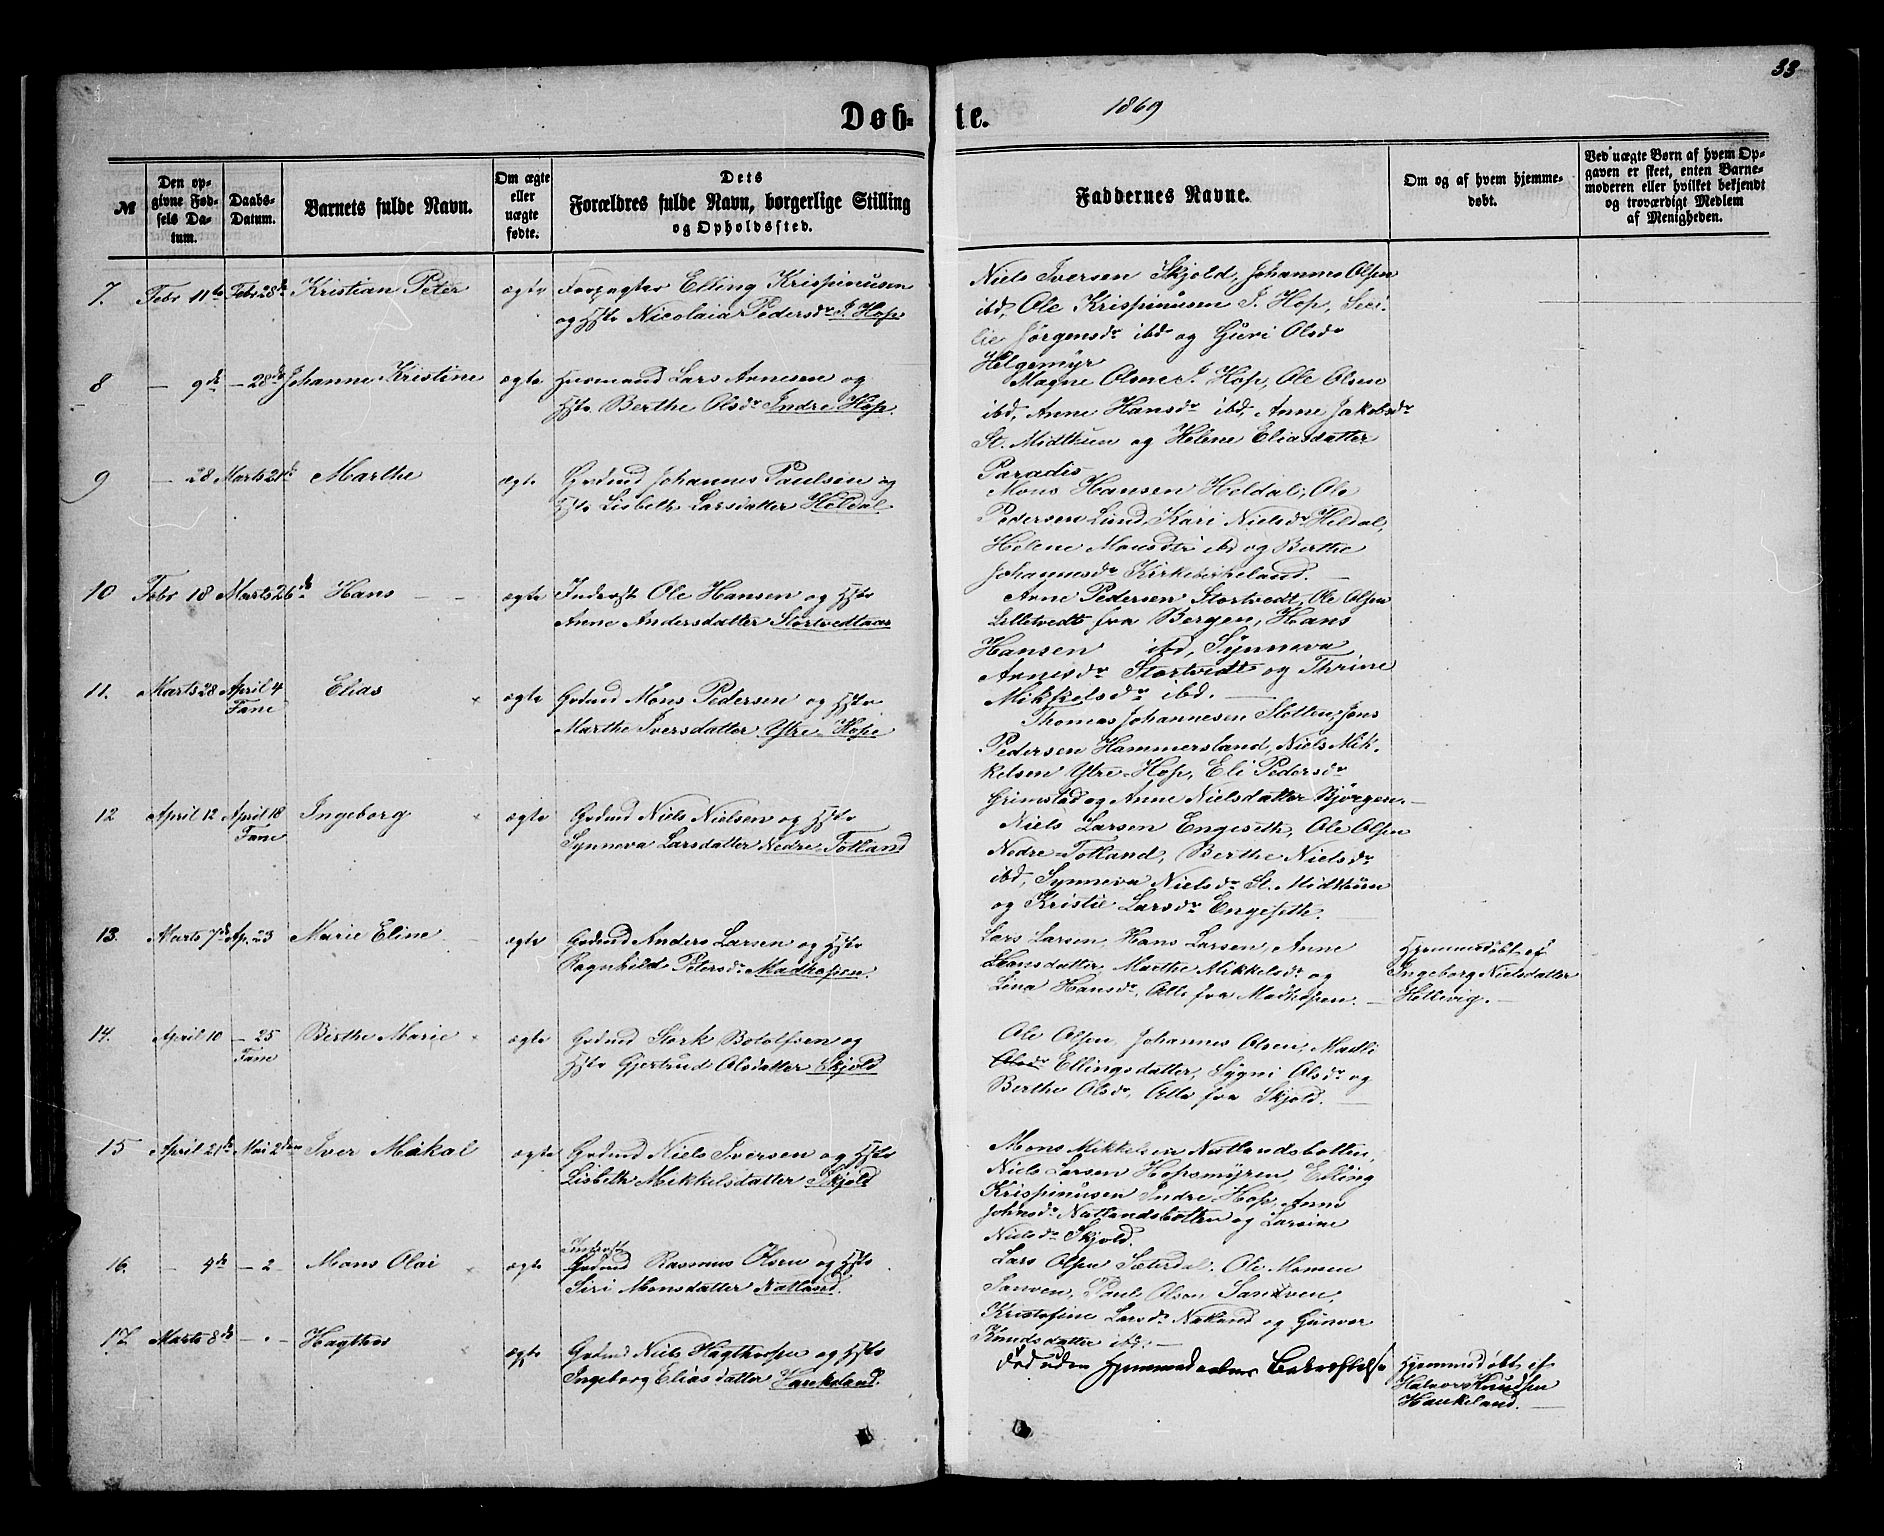 33
Døb- te. 1869
№
Den op-
givne Fød-
sels Da-
tum.
Daabs-
Datum.
Barnets fulde Navn.
Om ægte
eller
uægte
fødte.
Dets
Forældres fulde Navn, borgerlige Stilling
og Opholdssted.
Faddernes Navne.
Om og af hvem hjemme-
døbt.
Ved uægte Børn af hvem Op-
gaven er skeet, enten Barne-
moderen eller hvilket bekjendt
og troværdigt Medlem
af Menigheden.
7. Febr 11te Febr 28de Kristian Peter ægte Forpagter Elling Krispinusen
og Hstr Nicolaia Pedersdr I. Hop
Niels Iversen Skjold, Johannes Olsen
ibd, Ole Krispinusen I. Hop, Seci-
lie Jørgensdr ibd og Guri Olsdr
Helgemyr
8 — 9de — 28de Johanne Kristine ægte Husmand Lars Arnesen og
Hstr Berthe Olsdr Indre Hop.
Magne Olsen I. Hop, Ole Olsen
ibd, Anne Hansdr ibd, Anne Jakobsdr
St. Midthun og Helene Eliasdatter
Paradis
9 — 28 Marts 21de Marthe ægte Grdmd Johannes Paulsen og
Hstr Lisbeth Larsdatter Heldal
Mons Hansen Heldal, Ole
Pedersen Lund, Kari Nielsdr Heldal,
Helene Monsdtr ibd og Berthe
Johannesdr Kirkebirkeland. —
10 Febr 18 Marts 26de Hans — — ægte Inderst Ole Hansen og Hstr
Anne Andersdatter Stortvedtaas
Arne Pedersen Stortvedt, Ole Olsen
Lilletvedt fra Bergen, Hans
Hansen ibd, Synneva
Arnesdr Stortvedt og Thrine
Mikkelsdr ibd. —
11. Marts 28 April 4 Elias ægte Grdmd Mons Pedersen og Hstr
Fane
Marthe Iversdatter Ytre Hope
Thomas Johannesen Sletten, Jens
Pedersen Hammersland, Niels Mik-
kelsen Ytre Hop, Eli Pedersdr
Grimstad og Anne Nielsdatter Bjørgen. —
12 April 12 April 18 Ingeborg ægte Grdmd Niels Nielsen og Hstr
Fane
Synneva Larsdatter Nedre Totland
Niels Larsen Engeseth, Ole Olsen
Nedre Totland, Berthe Nielsdr
ibd, Synneva Nielsdr St. Midthun
og Kristie Larsdr Engesette.
13. Marts 7de Ap. 23 Marie Eline — ægte Grdmd Anders Larsen og Hstr
Ragnhild Petersdr Madhopen.
Lars Larsen, Hans Larsen, Anne
Hansdatter, Marthe Mikkelsdr og
Lina Hansdr, Alle fra Madhopen. —
Hjemmedøbt af
Ingeborg Nielsdatter
Hellevig. —
14. April 10 — 25 Berthe Marie ægte Grdmd Stork Botolfsen og
Fane
Hstr Gjertrud Olsdatter Skjold
Ole Olsen, Johannes Olsen, Madli
Olsdr Ellingsdatter, Sygni Olsdr og
Berthe Olsdr, Alle fra Skjold. —
15 April 21de Mai 2den Iver Mikal ægte Grdmd Niels Iversen og Hstr
Lisbeth Mikkelsdatter Skjold
Mons Mikkelsen Natlandsbotten,
Niels Larsen Hopsmyren, Elling
Krispinusen Indre Hop, Anne
Johnsdr Natlandsbotten og Larsine
Nielsdr Skjold.
16. — 4de — 2 Mons Olai ægte Inderst
Grdmd Rasmus Olsen og Hstr
Siri Monsdatter Natland.
Lars Olsen Sæterdal, Ole Monsen
Sanven, Paul Olsen Sandven,
Kristofine Larsdr Natland og Gunvor
Knudsdatter ibd. —
17. Marts 8de — " — Hagthor ægte Grdmd Niels Hagthorsen og Hstr
Ingeborg Eliasdatter Haukeland.
død uden Hjemmedaabens Bekræftelse
Hjemmedøbt af
Halvor Knudsen
Haukeland. —